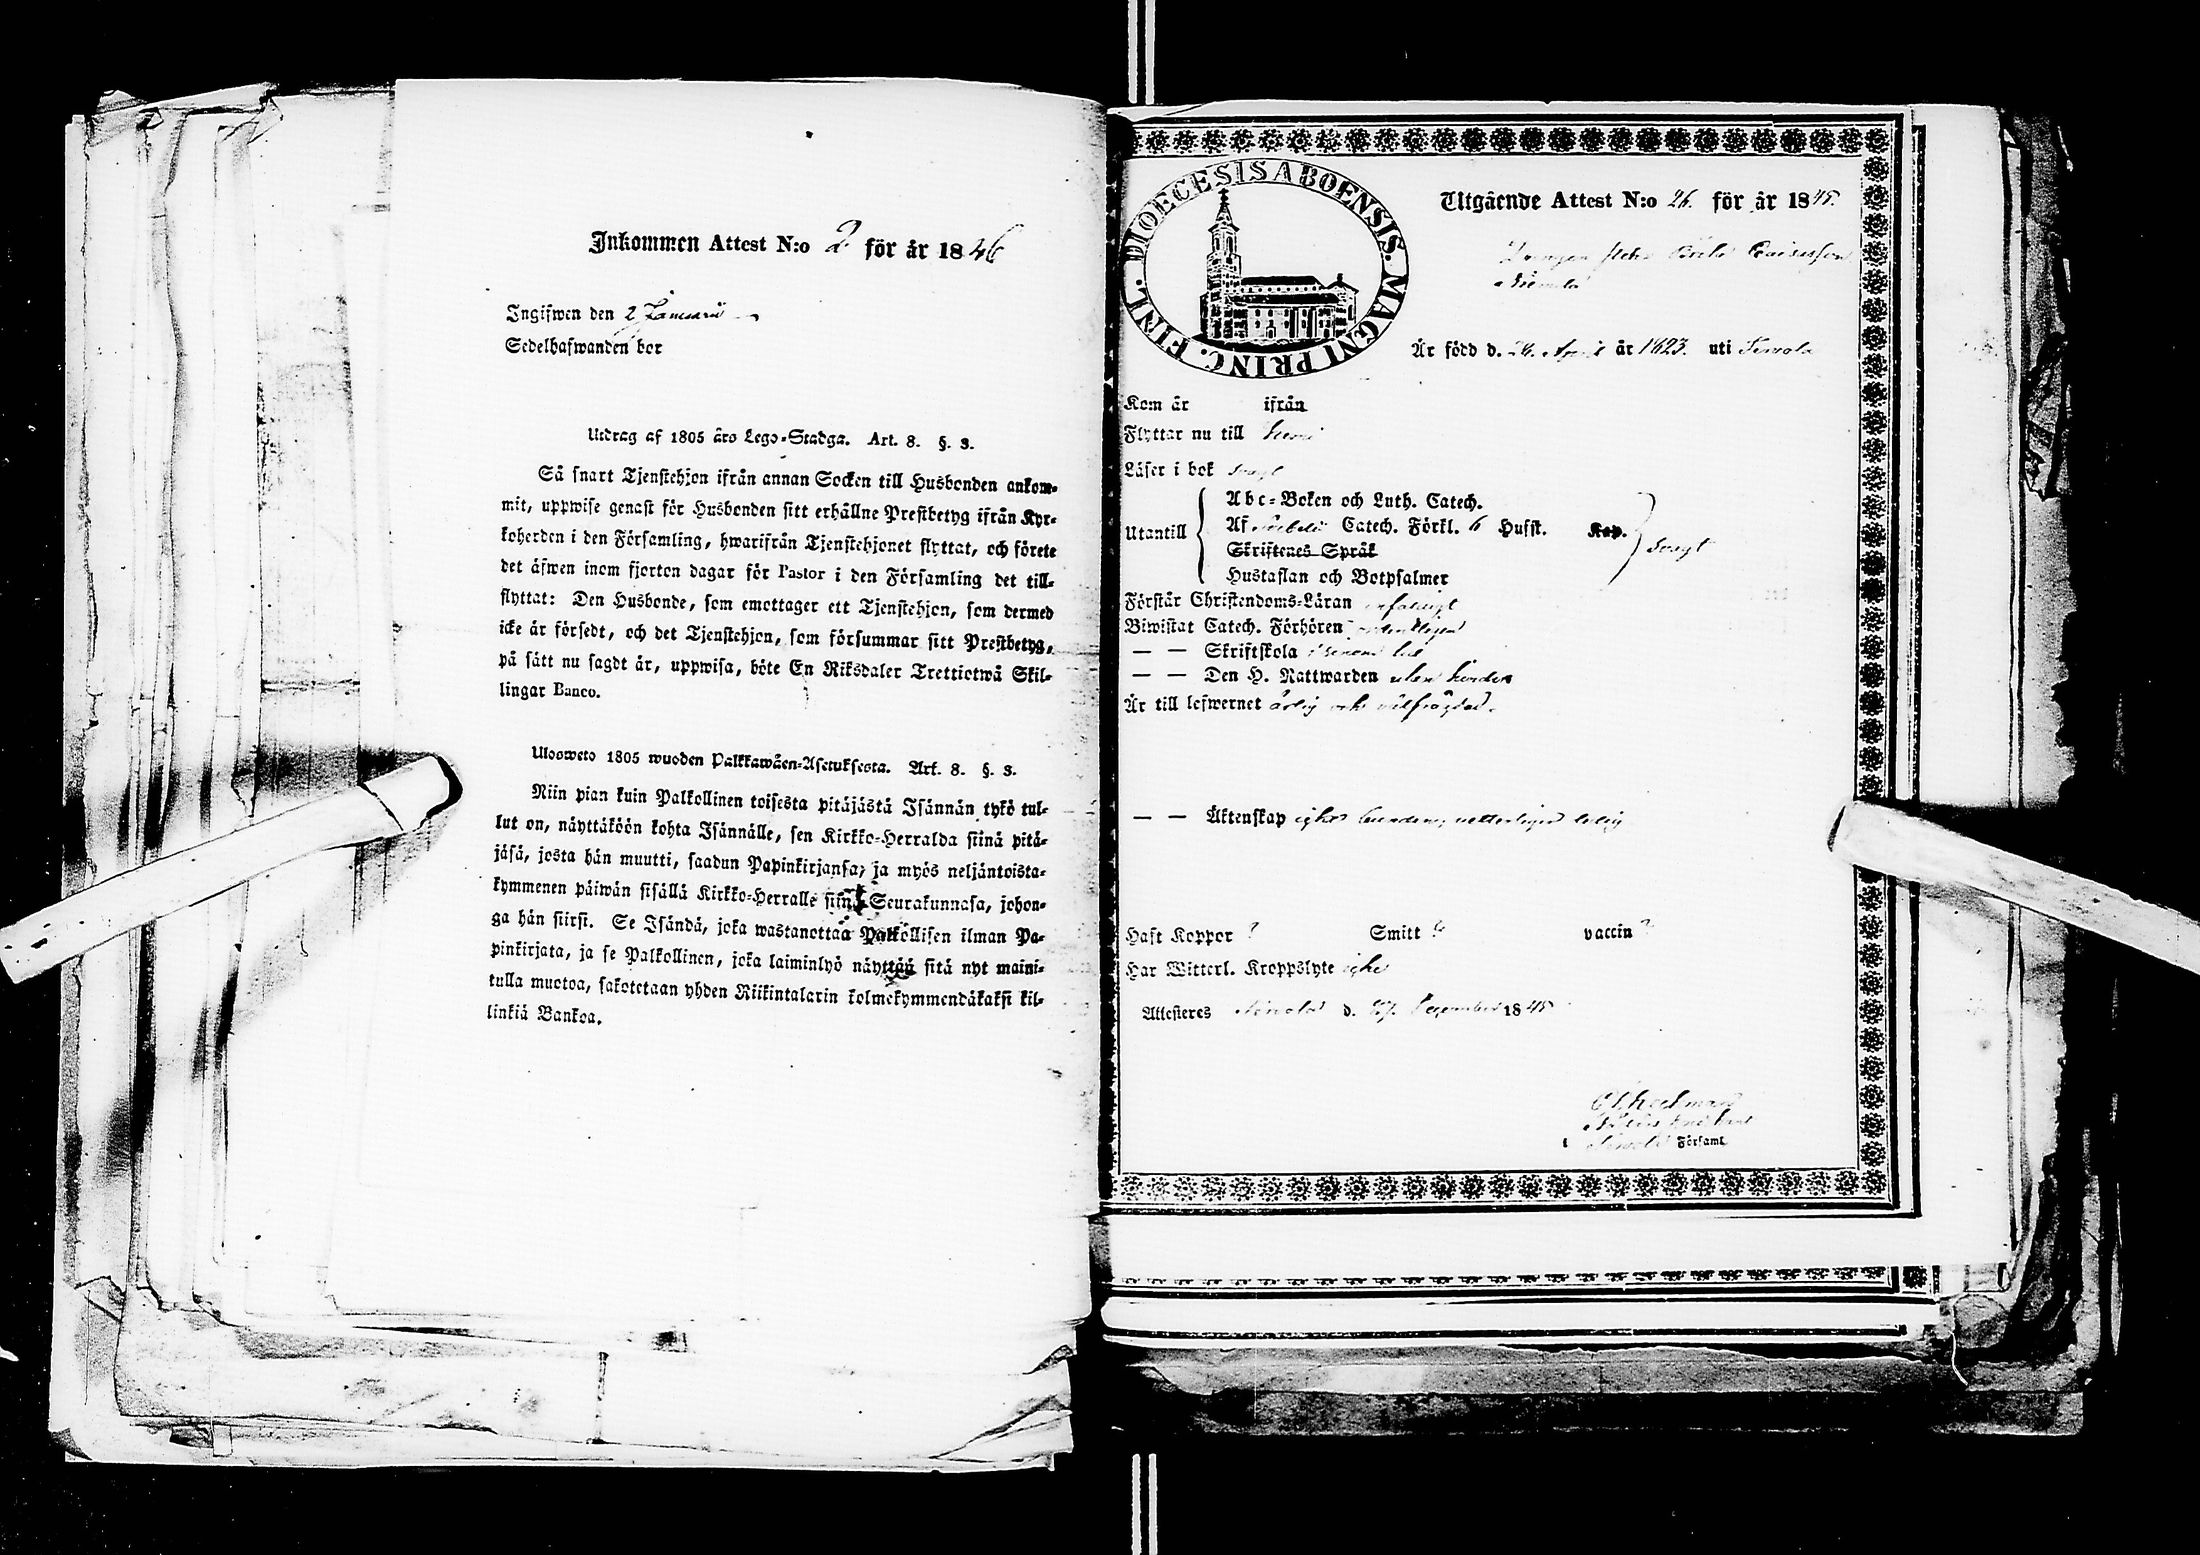 Inkommen Attest N:o 2 för år 1846
Ingifwen den 2 Januarii
Sedelhafwanden bor
Utdrag af 1805 års Lego-Stadga. Art. 8. §. 3.
Så snart Tjenstehjon ifrån annan Socken till Husbonden ankom-
mit, uppwise genast för Husbonden sitt erhållne Prestbetyg ifrån Kyr-
koherden i den Församling, hwarifrån Tjenstehjonet flyttat, och förete
det äfwen inom fjorton dagar för Pastor i den Församling det till-
flyttat: Den Husbonde, som emottager ett Tjenstehjon, som dermed
icke är försedt, och det Tjenstehjon, som försummar sitt Prestbetyg,
på sätt nu sagdt är, uppwisa, böte En Riksdaler Trettiotwå Skil-
lingar Banco.
Ulosweto 1805 wuoden Palkkawäen-Asetuksesta. Art. 8. §. 3.
Niin pian kuin Palkollinen toisesta pitäjästä Isännän tykö tul-
lut on, näyttäköön kohta Isännälle, sen Kirkko-Herralda siinä pitä-
jäsä, josta hän muutti, saadun Papinkirjansa; ja myös neljäntoista-
kymmenen päiwän sisällä Kirkko-Herralle siinä Seurakunnasa, johon-
ga hän siirsi. Se Isändä, joka wastanottaa Palkollisen ilman Pa-
pinkirjata, ja se Palkollinen, joka laiminlyö näyttää sitä nyt maini-
tulla muotoa, sakotetaan yhden Riikintalarin kolmekymmendäkaksi kil-
linkiä Bankoa.
DIOECESIS ABOENSIS. MAGNI PRINC. FINL.
Utgående Attest N:o 26. för år 1845.
Drengen
Är född d. 26. April år 1823. uti
Kom år ifrån
Flyttar nu till
Läser i bok svagt
Utantill
Abc-Boken och Luth. Catech.
Af Catech. Förkl. 6 Hufst. Kap.
Skriftenes Språk
Hustaflan och Botpsalmer
svagt
Förstår Christendoms-Läran enfaldigt
Biwistat Catech. Förhören ordentligen
— — Skriftskola
— — Den H. Nattwarden utan hinder
Är till lefwernet ärlig och välfrägdad.
— — Äktenskap ledig
Haft Koppor ? Smitt ? vaccin ?
Har Witterl. Kroppslyte ighet
Attesteres d. December 1845
i Församl.